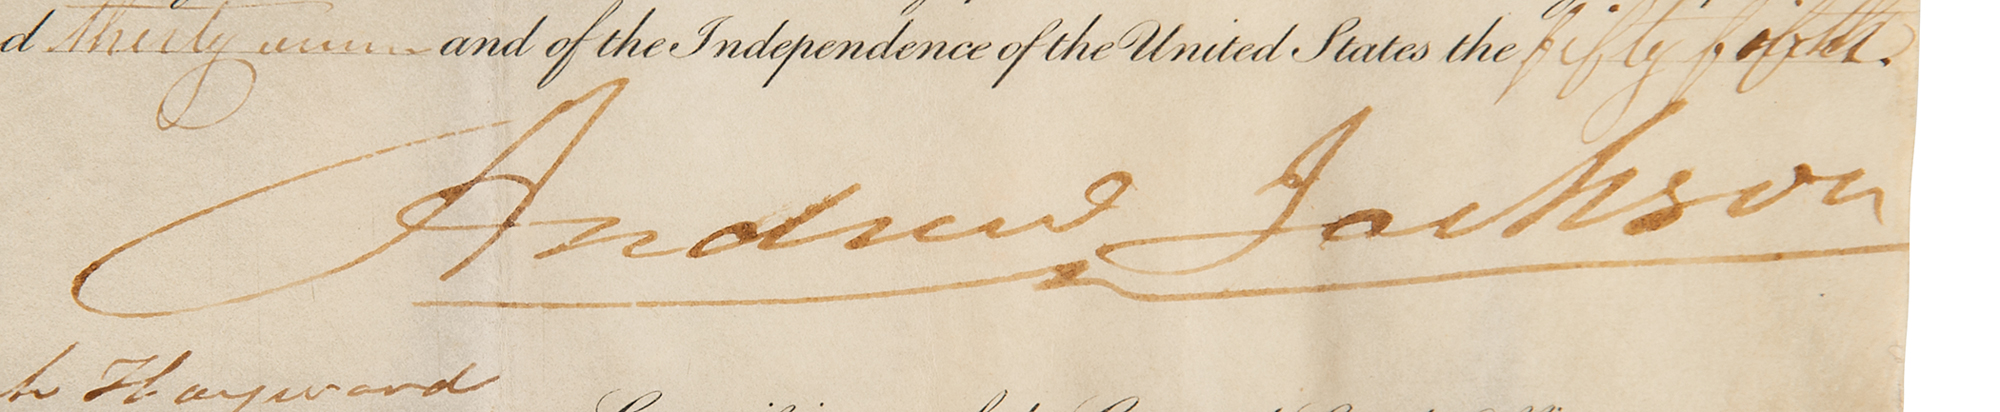 d thirty and of the Independence of the United States the fifty fifth.
Andrew Jackson
h Hayward